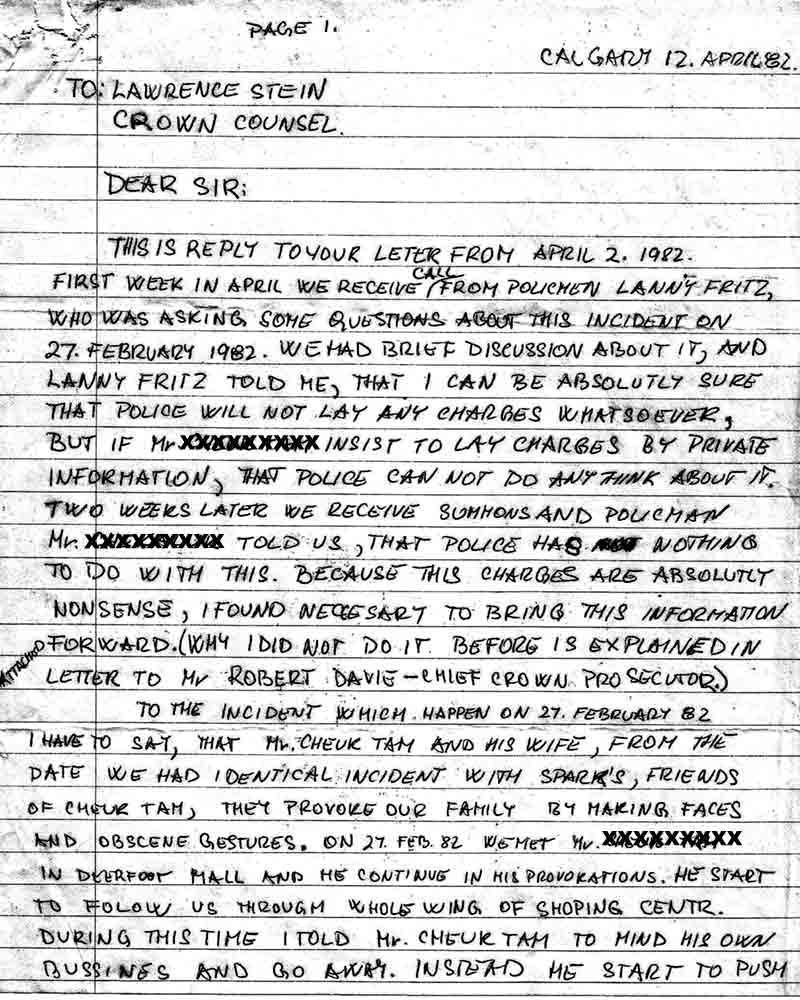 PAGE 1.
CALGARY 12. APRIL 82.
TO: LAWRENCE STEIN
CROWN COUNSEL.
DEAR SIR:
THIS IS REPLY TO YOUR LETER FROM APRIL 2. 1982.
CALL
FIRST WEEK IN APRIL WE RECEIVE FROM POLICMEN LANNY FRITZ,
WHO WAS ASKING SOME QUESTIONS ABOUT THIS INCIDENT ON
27. FEBRUARY 1982. WE HAD BRIEF DISCUSSION ABOUT IT, AND
LANNY FRITZ TOLD ME, THAT I CAN BE ABSOLUTLY SURE
THAT POLICE WILL NOT LAY ANY CHARGES WHATSOEVER,
BUT IF Mr. XXXXXXXXX INSIST TO LAY CHARGES BY PRIVATE
INFORMATION, THAT POLICE CAN NOT DO ANYTHINK ABOUT IT.
TWO WEEKS LATER WE RECEIVE SUMMONS AND POLICMAN
Mr. XXXXXXXXX TOLD US, THAT POLICE HAS NOTHING
TO DO WITH THIS. BECAUSE THIS CHARGES ARE ABSOLUTLY
NONSENSE, I FOUND NECCESARY TO BRING THIS INFORMATION
FORWARD. (WHY I DID NOT DO IT BEFORE IS EXPLAINED IN
ATTACHED
LETTER TO Mr ROBERT DAVIE - CHIEF CROWN PROSECUTOR.)
TO THE INCIDENT WHICH HAPPEN ON 27. FEBRUARY 82
I HAVE TO SAY, THAT Mr. CHEUK TAM AND HIS WIFE, FROM THE
DATE WE HAD IDENTICAL INCIDENT WITH SPARK'S, FRIENDS
OF CHEUK TAM, THEY PROVOKE OUR FAMILY BY MAKING FACES
AND OBSCENE GESTURES. ON 27. FEB. 82 WE MET Mr. XXXXXXXXX
IN DEERFOOT MALL AND HE CONTINUE IN HIS PROVOKATIONS. HE START
TO FOLOW US THROUGH WHOLE WING OF SHOPING CENTR.
DURING THIS TIME I TOLD Mr. CHEUK TAM TO MIND HIS OWN
BUSSINES AND GO AWAY. INSTEAD HE START TO PUSH